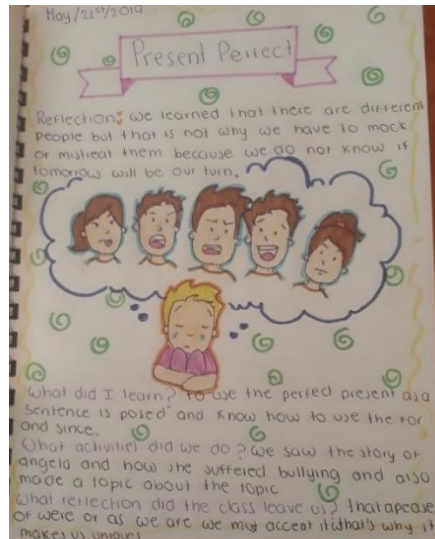 May/21st/2019
Present Perfect
Reflection: we learned that there are different
people but that is not why we have to mock
or mistreat them because we do not know if
tomorrow will be our turn.
What did I learn? To use the perfect present as a
sentence is posed and know how to use the for
and since.
What activities did we do? we saw the story of
angela and how she suffered bullying and also
made a topic about the topic
What reflection did the class leave us? that apease
of were or as we are we must accept it that's why it
makes us uniques